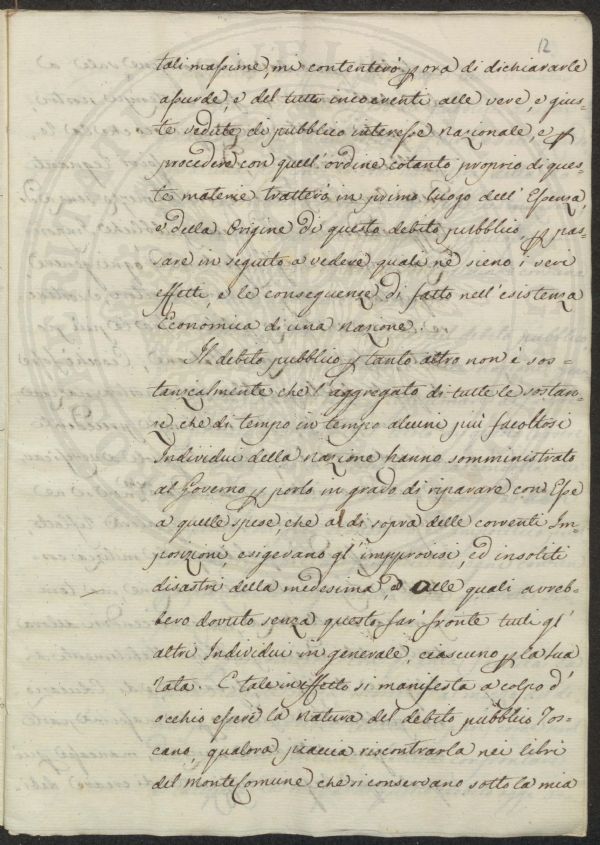 12
tali massime, mi contenterò p ora di dichiararle
assurde, e del tutto incoerenti alle vere, e gius-
te vedute di pubblico interesse nazionale, e p
procedere con quell'ordine cotanto proprio di ques-
te materie tratterò in primo luogo dell'Essenza,
e della Origine di questo debito pubblico, p pas-
sare in seguito a vedere quali ne sieno i veri
effetti e le conseguenze di fatto nell'esistenza
Economica di una nazione.
Il debito pubblico p tanto altro non è sos-
tanzialmente che l'aggregato di tutte le sostan-
ze che di tempo in tempo alcuni più facoltosi
Individui della nazione hanno somministrato
al Governo p porlo in grado di riparare con Esse
a quelle spese, che al di sopra delle correnti Im-
posizioni, esigevano gl'improvvisi, ed insoliti
disastri della medesima, e alle quali avreb-
bero dovuto senza questo far fronte tutti gl'
altri Individui in generale, ciascuno p la sua
rata. E tale in effetto si manifesta a colpo d'
occhio essere la natura del debito pubblico Tos-
cano, qualora piaccia riscontrarla nei libri
del Monte Comune che si conservano sotto la mia